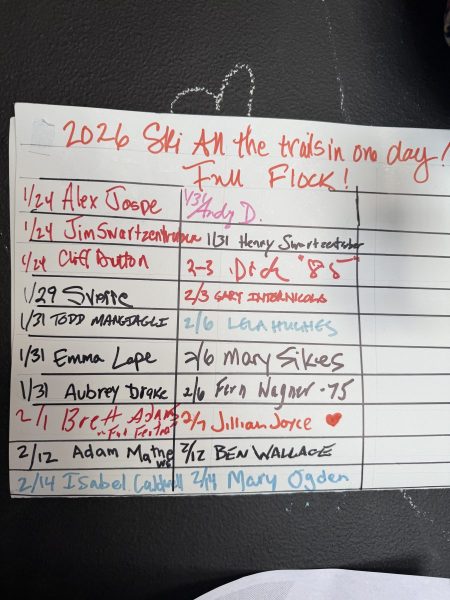 2026 Ski All the trails in one day!
Full Flock!
1/24 Alex Jospe 1/31 Andy D.
1/24 Jim Swartzentruber 1/31 Henry Swartzentruber
1/24 Cliff Button 2-3 Dick "85"
1/29 Sverre 2/3 GARY INTERNICOLA
1/31 TODD MANGIAGLI 2/6 LELA HUGHES
1/31 Emma Lape 2/6 Mary Sikes
1/31 Aubrey Drake 2/6 Fern Wagner - 75
2/1 Brett Adams 2/7 Jillian Joyce ❤
2/12 Adam Mathews 2/12 BEN WALLACE
2/14 Isabel Caldwell 2/14 Mary Ogden